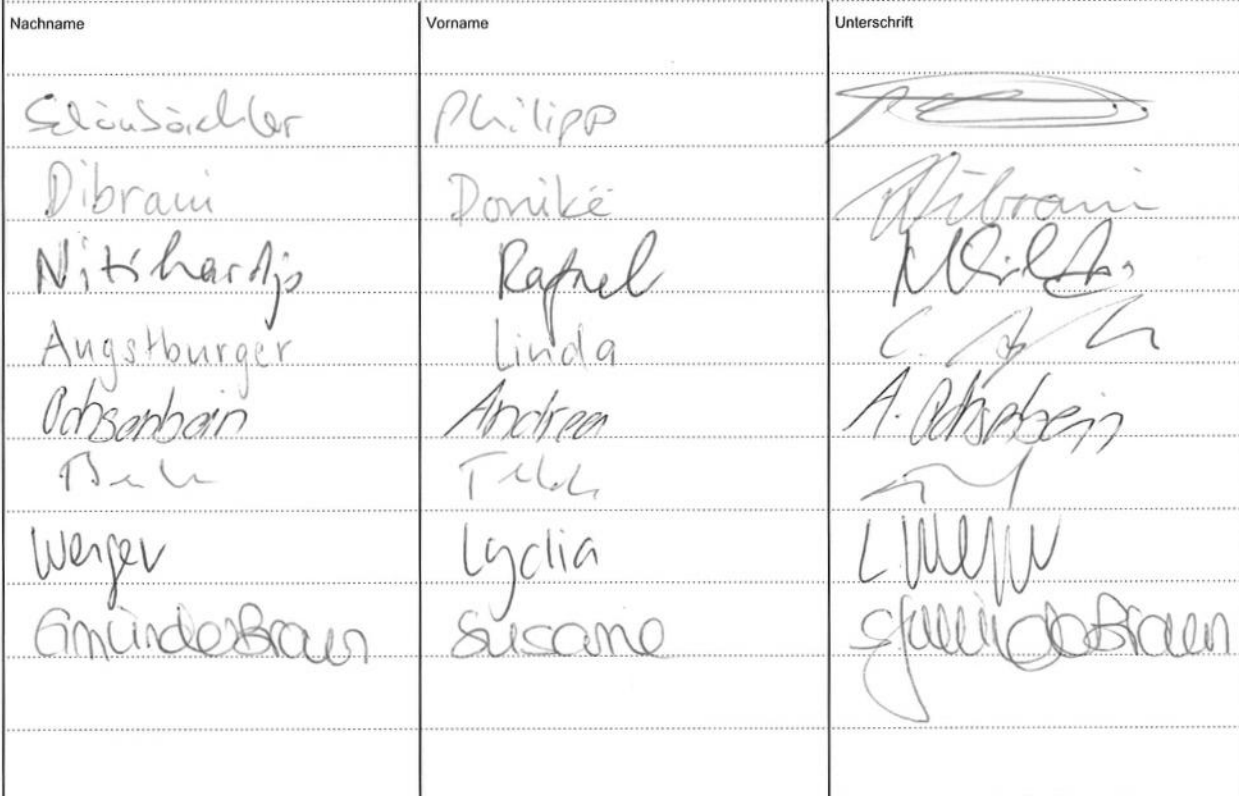 Nachname Vorname Unterschrift
Schönbächler Philipp
Dibrani Donikë Dibrani
Nitihardjo Rafael
Augstburger Linda
Ochsenbein Andrea A. Ochsenbein
Werger Lydia L. Werger
Gmünder Braun Susanne Gmünder Braun